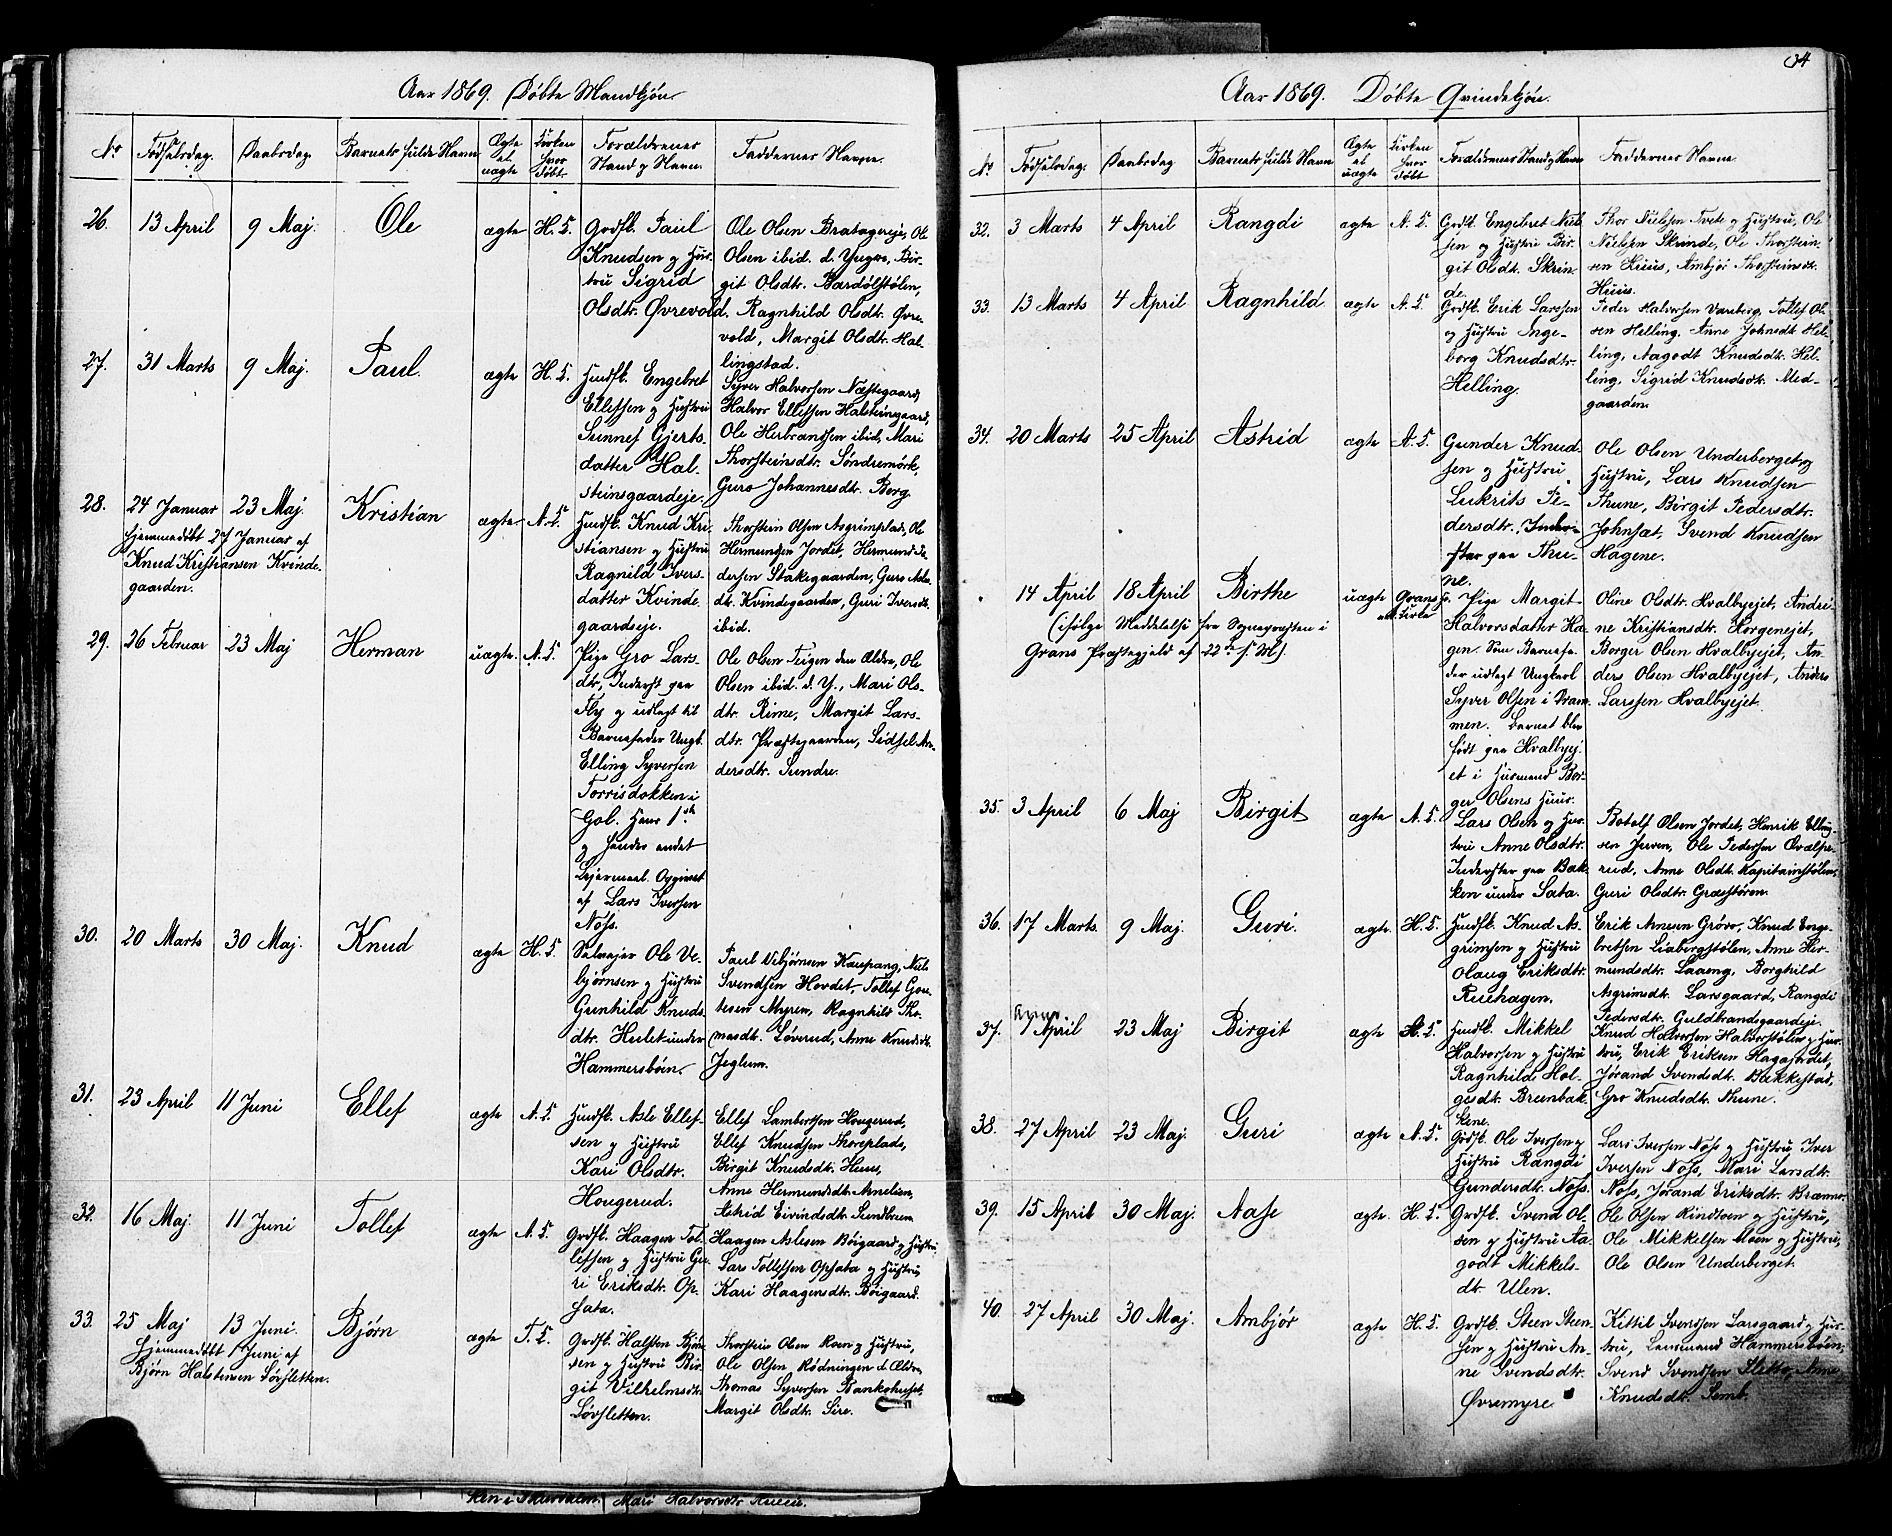 Aar 1869. Døbte Mandkjøn.
No Fødselsdag. Daabsdag. Barnets fulde Navn Ægte el. uægte Kirken hvor døbt. Forældrenes Stand og Navn. Faddernes Navne.
26. 13 April 9 Maj. Ole ægte H. K.
Grdfk. Paul
Knudsen og Hus-
tru Sigrid
Olsdtr. Øvrevold.
Ole Olsen Bratagereje, Ole
Olsen ibid. d. Yngre, Bir-
git Olsdtr. Bardølstølen,
Ragnhild Olsdtr. Øvre-
vold, Margit Olsdtr. Hal-
lingstad.
27. 31 Marts 9 Maj. Paul. ægte H. K.
Husfk. Engebret
Ellefsen og Hustru
Sunnef Gjerts-
datter Hal-
steinsgaardeje.
Syver Halvorsen Næstegaard,
Halvor Ellefsen Halsteinsgaard,
Ole Herbrandsen ibid, Mari
Thorsteinsdtr. Søndremørk,
Guro Johannesdtr. Berg.
28. 24 Januar 23 Maj. Kristian ægte A. K.
hjemmedøbt 27 Januar af
Knud Kristiansen Kvinde-
gaarden.
Husfk. Knud Kri-
stiansen og Hustru
Ragnild Ivers-
datter Kvinde-
gaardseje.
Thorstein Olsen Asgrimplads, Ole
Hermundsen Jordet, Hermund Pe-
dersen Stakegaarden, Guro Asle-
dt. Kvindegaarden, Guri Iversdt.
ibid.
29. 26 Februar 23 Maj Herman uægte. A. K.
Pige Gro Lars-
dtr, Inderst paa
Fly og udlagt til
Barnefader Ungk.
Elling Syversen
Torrisdokken i
Gol. Hans 1ste
og hendes andet
Lejermaal. Opgivet
af Lars Iversen
Nøss.
Ole Olsen Teigen den Ældre, Ole
Olsen ibid. d. Y., Mari Ols-
dtr. Rime, Margit Lars-
dtr. Præstegaarden, Sidsel An-
dersdtr. Sundre.
30. 20 Marts 30 Maj. Knud ægte H. K.
Selvejer Ole Ve-
bjørnsen og Hustru
Gunhild Knuds-
dtr. Hesla under
Hammersbøin.
Paul Vebjørnsen Kaupang, Niels
Svendsen Hovdet, Tollef Gou-
tesen Myren, Ragnhild Tho-
masdt. Løverud, Anne Knudsdt.
Jeglum.
31. 23 April 11 Juni Ellef ægte A. K.
Husfk. Asle Ellef-
sen og Hustru
Kari Olsdtr.
Hougerud.
Ellef Lambertsen Hougerud,
Ellef Knudsen Thoreplads,
Birgit Knudsdt. Huus,
Anne Hermundsdt. Arnelien,
Astrid Eivindsdt. Sundbreen
32. 16 Maj 11 Juni Tollef ægte A. K.
Grdfk. Haagen Tol-
lefsen og Hustru Gu-
ri Eriksdtr. Op-
sata.
Haagen Aslesen Bøigaard og Hustru
Lars Tollefsen Opsata og Hustru,
Kari Haagensdtr. Bøigaard.
33. 25 Maj 13 Juni. Bjørn ægte T. K.
Hjemmedøbt 1 Juni af
Bjørn Halstensen Løvsletten.
Grdfk. Halsten Bjørn-
sen og Hustru Bir-
git Vilhelmsdtr.
Løvsletten.
Thorstein Olsen Roen og Hustru,
Ole Olsen Rødningen d. Ældre,
Thomas Syversen Bankehuset,
Margit Olsdtr. Sire.
ken i Skurdalen. Mari Halvorsdtr.
34
Aar 1869. Døbte Qvindekjøn.
No Fødselsdag. Daabsdag Barnets fulde Navn Ægte el. uægte Kirken hvor døbt Forældrenes Stand og Navn Faddernes Navne.
32. 3 Marts 4 April Rangdi ægte A. K.
Grdfk. Engebret Niel-
sen og Hustru Bir-
git Olsdt. Skrin-
de.
Thor Nielsen Tvete og Hustru, Ole
Nielsen Skrinde, Ole Thorstein-
sen Huus, Ambjør Thorsteinsdt.
Huus.
33. 13 Marts 4 April Ragnhild ægte A. K.
Grdfk. Erik Larssen
og Hustru Inge-
borg Knudsdtr.
Helling.
Peder Halvorsen Vareberg, Tollef Ol-
sen Helling, Anne Johnsdt Hel-
ling, Aagodt Knudsdt. Hel-
ling, Sigrid Knudsdt. Med-
gaarden.
34. 20 Marts 25 April Astrid ægte A. K.
Gunder Knud-
sen og Hustru
Lukrits Pe-
dersdtr. Inder-
ster paa Thu-
ne.
Ole Olsen Underberget og
Hustru, Lars Knudsen
Thune, Birgit Pedersdtr.
Johnsæt, Svend Knudsen
Hagene.
14 April 18 April Birthe uægte Grans Kirke
(ifølge Meddelelse fra Sognepræsten i
Grans Præstegjeld af 22de f. M.)
Pige Margit
Halvorsdatter Ha-
gen. Som Barnefa-
der udlagt Ungkarl
Syver Olsen i Dram-
men. Barnet blev
født paa Hvalbyej-
et i Husmand Bor-
ger Olsens Huus.
Oline Olsdt. Hvalbyejet, Andri-
ne Kristiansdt. Horgenejet,
Borger Olsen Hvalbyejet, An-
ders Olsen Hvalbyejet, Anders
Larssen Hvalbyejet.
35. 3 April 6 Maj Birgit ægte A. K.
Lars Olsen og Hu-
stru Anne Olsdtr.
Inderster paa Bak-
ken under Sata.
Botolf Olsen Jordet, Henrik Elling-
sen Juven, Ole Pedersen Qvælpe-
rud, Anne Olsdt. Kapitainstølen,
Guri Olsdtr. Græstøren.
36. 17 Marts. 9 Maj. Guri. ægte. H. K.
Husfk. Knud As-
grimsen og Hustru
Olaug Eriksdtr.
Ruehagen.
Erik Arnesen Grøve, Knud Enge-
bretsen Liabergstølen, Anne Her-
mundsdtr. Laaeng, Borghild
Asgrimsdt. Larsgaard, Rangdi
Pedersdtr. Guldbrandsgaardeje.
37. 7 April 23 Maj Birgit ægte A. K.
Husfk. Mikkel
Halvorsen og Hustru
Ragnhild Hol-
gesdt. Breenbak-
kene.
Knud Halvorsen Halvorstølen og Hus-
tru, Erik Eriksen Hagajordet,
Jørand Svendsdt. Bakkestad,
Gro Knudsdt. Thune.
38. 27 April 23 Maj. Guri ægte A. K.
Grdfk. Ole Iversen og
Hustru Rangdi
Gundersdt. Nøss.
Lars Iversen Nøss og Hustru Iver
Iversen Nøss, Mari Larsdtr.
Nøss, Jørand Eriksdtr. Brænno.
39. 15 April 30 Maj. Aase ægte. H. K.
Grdfk. Svend Ol-
sen og Hustru Aa-
godt Mikkels-
dt. Ulen.
Ole Olsen Rindtoen og Hustru,
Ole Mikkelsen Moen og Hustru,
Ole Olsen Underberget.
40. 27 April 30 Maj. Ambjør ægte H. K.
Grdfk. Steen Steen-
sen og Hustru An-
ne Svendsdtr.
Øvremyre.
Kittil Svendsen Larsgaard og Hus-
tru, Lensmand Hammersbøen,
Svend Svendsen Sletto, Anne
Knudsdt. Semb.